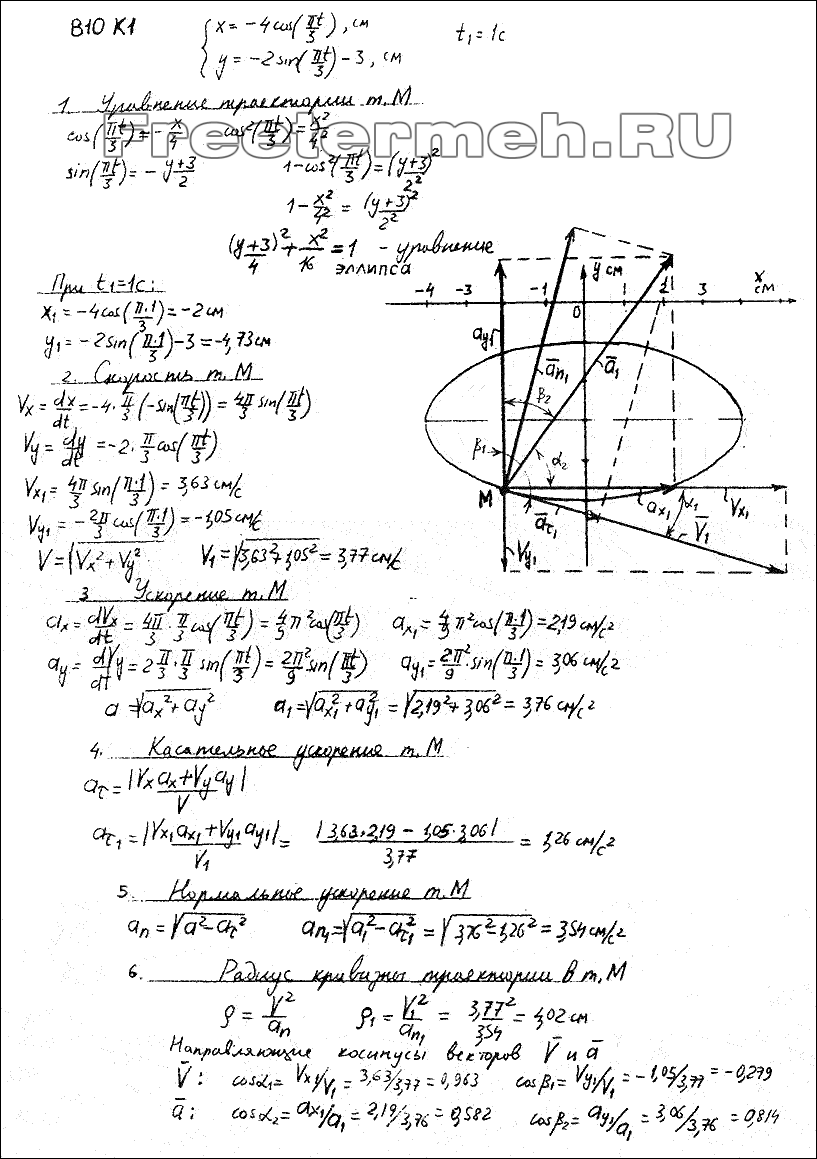 В10 К1
x = -4cos(πt/3), см
y = -2sin(πt/3) - 3, см
t₁ = 1с
1. Уравнение траектории т. М
Freetermeh.RU
cos(πt/3) = -x/4    cos²(πt/3) = x²/4²
sin(πt/3) = -(y+3)/2    1 - cos²(πt/3) = (y+3)²/2²
1 - x²/4² = (y+3)²/2²
(y+3)²/4 + x²/16 = 1 - уравнение
эллипса
При t₁=1с:
x₁ = -4cos(π·1/3) = -2 см
y₁ = -2sin(π·1/3) - 3 = -4,73 см
2. Скорость т. М
Vx = dx/dt = -4·π/3(-sin(πt/3)) = 4π/3 sin(πt/3)
Vy = dy/dt = -2·π/3 cos(πt/3)
Vx₁ = 4π/3 sin(π·1/3) = 3,63 см/с
Vy₁ = -2π/3 cos(π·1/3) = -1,05 см/с
V = √(Vx² + Vy²)    V₁ = √(3,63² + 1,05²) = 3,77 см/с
-4 -3 -1 0 1 2 3 x см
y см
ay₁ an₁ a₁
β₂
β₁ α₂
М aτ₁ ax₁ α₁ Vx₁
Vy₁ V₁
3 Ускорение т. М
ax = dVx/dt = 4π/3·π/3 cos(πt/3) = 4/9 π² cos(πt/3)    ax₁ = 4/9 π² cos(π·1/3) = 2,19 см/с²
ay = dVy/dt = 2π/3·π/3 sin(πt/3) = 2π²/9 sin(πt/3)    ay₁ = 2π²/9·sin(π·1/3) = 3,06 см/с²
a = √(ax² + ay²)    a₁ = √(ax₁² + ay₁²) = √(2,19² + 3,06²) = 3,76 см/с²
4. Касательное ускорение т. М
aτ = |Vx ax + Vy ay|/V
aτ₁ = |Vx₁ ax₁ + Vy₁ ay₁|/V₁ = |3,63·2,19 - 1,05·3,06|/3,77 = 1,26 см/с²
5. Нормальное ускорение т. М
an = √(a² - aτ²)    an₁ = √(a₁² - aτ₁²) = √(3,76² - 1,26²) = 3,54 см/с²
6. Радиус кривизны траектории в т. М
ρ = V²/an    ρ₁ = V₁²/an₁ = 3,77²/3,54 = 4,02 см
Направляющие косинусы векторов V̄ и ā
V̄: cosα₁ = Vx₁/V₁ = 3,63/3,77 = 0,963    cosβ₁ = Vy₁/V₁ = -1,05/3,77 = -0,279
ā: cosα₂ = ax₁/a₁ = 2,19/3,76 = 0,582    cosβ₂ = ay₁/a₁ = 3,06/3,76 = 0,814